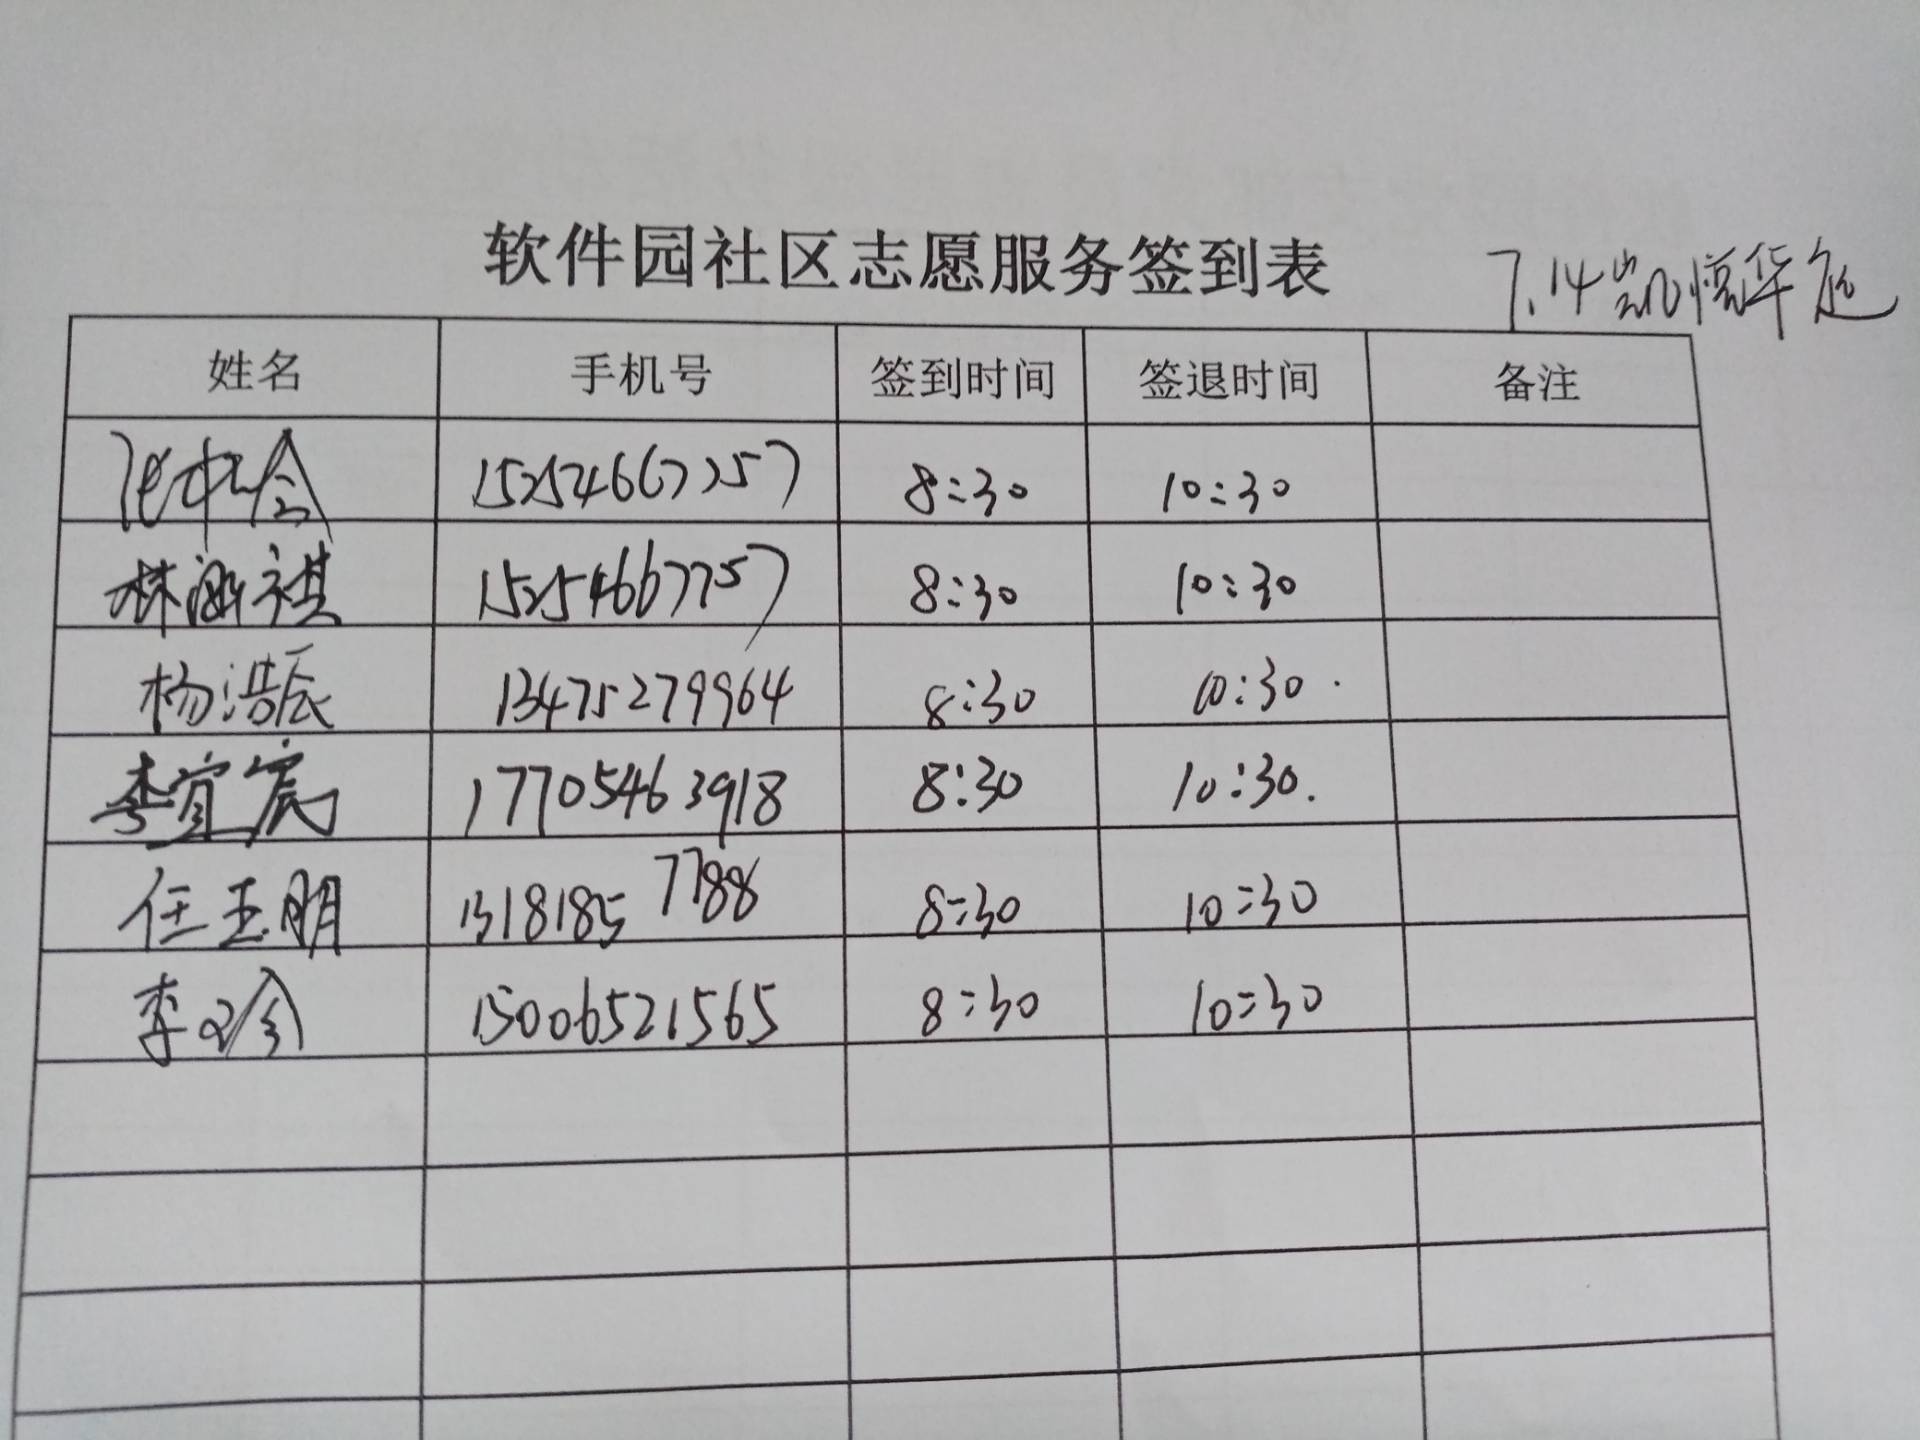 软件园社区志愿服务签到表
7.14 凯悦华庭
姓名 手机号 签到时间 签退时间 备注
15254667757 8:30 10:30
林 祺 15254667757 8:30 10:30
杨浩辰 13475279964 8:30 10:30.
李宜宸 17705463918 8:30 10:30.
任玉明 13181857788 8:30 10:30
李 15006521565 8:30 10:30